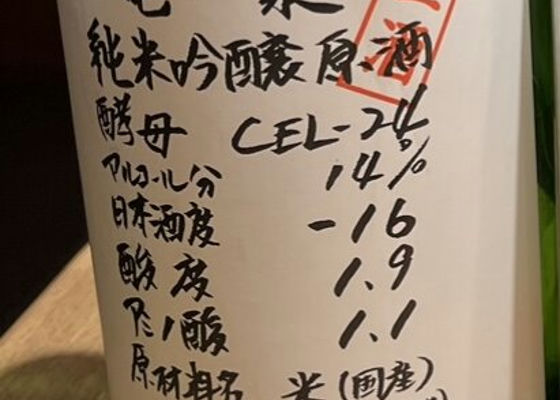 亀泉
純米吟醸原酒
酵母 CEL-24
アルコール分 14%
日本酒度 -16
酸度 1.9
アミノ酸 1.1
原材料名 米(国産)